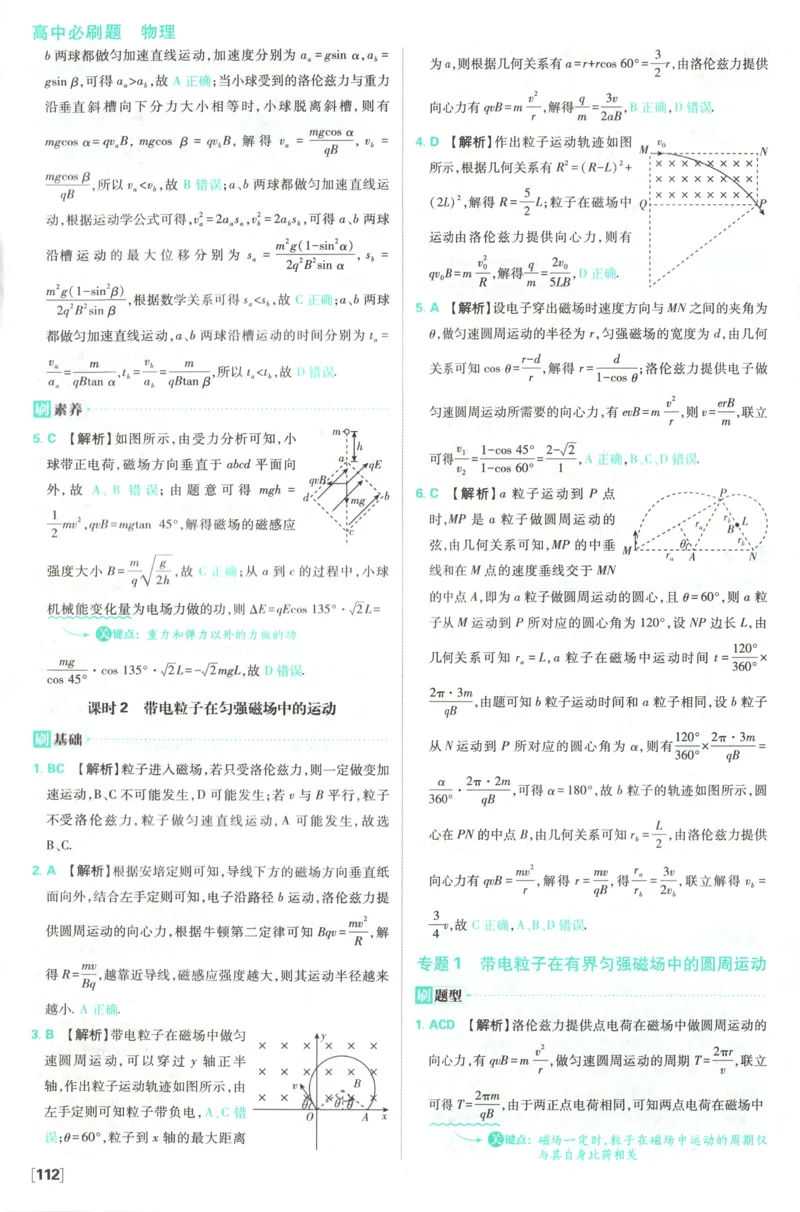 高中必刷题 物理
b 两球都做匀加速直线运动,加速度分别为 aₐ=gsin α,a_b=
gsin β,可得 aₐ>a_b,故 A 正确;当小球受到的洛伦兹力与重力
沿垂直斜槽向下分力大小相等时,小球脱离斜槽,则有
mgcos α=qvₐB, mgcos β = qv_bB, 解得 vₐ = mgcos α/qB, v_b =
mgcos β/qB,所以 vₐ<v_b,故 B 错误;a、b 两球都做匀加速直线运
动,根据运动学公式可得,vₐ²=2aₐsₐ,v_b²=2a_bs_b,可得 a、b 两球
沿槽运动的最大位移分别为 sₐ = m²g(1-sin²α)/2q²B²sin α, s_b =
m²g(1-sin²β)/2q²B²sin β,根据数学关系可得 sₐ<s_b,故 C 正确;a、b 两球
都做匀加速直线运动,a、b 两球沿槽运动的时间分别为 tₐ=
vₐ/aₐ=m/qBtan α,t_b=v_b/a_b=m/qBtan β,所以 tₐ<t_b,故 D 错误.
刷 素养
5. C 【解析】如图所示,由受力分析可知,小
球带正电荷,磁场方向垂直于 abcd 平面向
外,故 A、B 错误;由题意可得 mgh =
1/2mv²,qvB=mgtan 45°,解得磁场的磁感应
m
h
a
qE
qvB
d
b
mg
c
强度大小 B=m/q√(g/2h),故 C 正确;从 a 到 c 的过程中,小球
机械能变化量为电场力做的功,则 ΔE=qEcos 135°·√2L=
关键点:重力和弹力以外的力做的功
mg/cos 45°·cos 135°·√2L=-√2mgL,故 D 错误.
课时2 带电粒子在匀强磁场中的运动
刷 基础
1. BC 【解析】粒子进入磁场,若只受洛伦兹力,则一定做变加
速运动,B、C 不可能发生,D 可能发生;若 v 与 B 平行,粒子
不受洛伦兹力,粒子做匀速直线运动,A 可能发生,故选
B、C.
2. A 【解析】根据安培定则可知,导线下方的磁场方向垂直纸
面向外,结合左手定则可知,电子沿路径 b 运动,洛伦兹力提
供圆周运动的向心力,根据牛顿第二定律可知 Bqv=mv²/R,解
得 R=mv/Bq,越靠近导线,磁感应强度越大,则其运动半径越来
越小. A 正确.
3. B 【解析】带电粒子在磁场中做匀
速圆周运动,可以穿过 y 轴正半
轴,作出粒子运动轨迹如图所示,由
左手定则可知粒子带负电,A、C 错
误;θ=60°,粒子到 x 轴的最大距离
y
v
B
θ
θ
θ
O
A
x
[112]
为 a,则根据几何关系有 a=r+rcos 60°=3/2r,由洛伦兹力提供
向心力有 qvB=m v²/r,解得 q/m=3v/2aB,B 正确,D 错误.
4. D 【解析】作出粒子运动轨迹如图
所示,根据几何关系有 R²=(R-L)²+
(2L)²,解得 R=5/2L;粒子在磁场中
运动由洛伦兹力提供向心力,则有
qv₀B=m v₀²/R,解得 q/m=2v₀/5LB,D 正确.
M
v₀
N
Q
P
5. A 【解析】设电子穿出磁场时速度方向与 MN 之间的夹角为
θ,做匀速圆周运动的半径为 r,匀强磁场的宽度为 d,由几何
关系可知 cos θ=(r-d)/r,解得 r=d/(1-cos θ);洛伦兹力提供电子做
匀速圆周运动所需要的向心力,有 evB=m v²/r,则 v=erB/m,联立
可得 v₁/v₂=(1-cos 45°)/(1-cos 60°)=(2-√2)/1,A 正确,B、C、D 错误.
6. C 【解析】a 粒子运动到 P 点
时,MP 是 a 粒子做圆周运动的
弦,由几何关系可知,MP 的中垂
线和在 M 点的速度垂线交于 MN
P
r_b
L
rₐ
B
r_b
θ
M
rₐ
A
N
的中点 A,即为 a 粒子做圆周运动的圆心,且 θ=60°,则 a 粒
子从 M 运动到 P 所对应的圆心角为 120°,设 NP 边长 L,由
几何关系可知 rₐ=L,a 粒子在磁场中运动时间 t=120°/360°×
2π·3m/qB,由题可知 b 粒子运动时间和 a 粒子相同,设 b 粒子
从 N 运动到 P 所对应的圆心角为 α,则有 120°/360°×2π·3m/qB=
α/360°·2π·2m/qB,可得 α=180°,故 b 粒子的轨迹如图所示,圆
心在 PN 的中点 B,由几何关系可知 r_b=L/2,由洛伦兹力提供
向心力有 qvB=mv²/r,解得 r=mv/qB,得 rₐ/r_b=3v/2v_b,联立解得 v_b=
3/4v,故 C 正确,A、B、D 错误.
专题1 带电粒子在有界匀强磁场中的圆周运动
刷 题型
1. ACD 【解析】洛伦兹力提供点电荷在磁场中做圆周运动的
向心力,有 qvB=m v²/r,做匀速圆周运动的周期 T=2πr/v,联立
可得 T=2πm/qB,由于两正点电荷相同,可知两点电荷在磁场中
关键点:磁场一定时,粒子在磁场中运动的周期仅
与其自身比荷相关